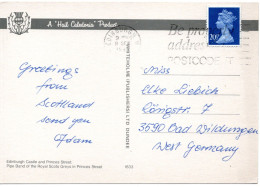 A "Hail Caledonia" Product
Be pr
addres
POSTCODE IT
20½P
Greetings
from
Scotland
send you
Adam
Miss
Elke Diebich
Königstr. 7
3590 Bad Wildungen
West Germany
WHITEHOLME (PUBLISHERS) LTD DUNDEE
Edinburgh Castle and Princes Street.
Pipe Band of the Royal Scots Greys in Princes Street.